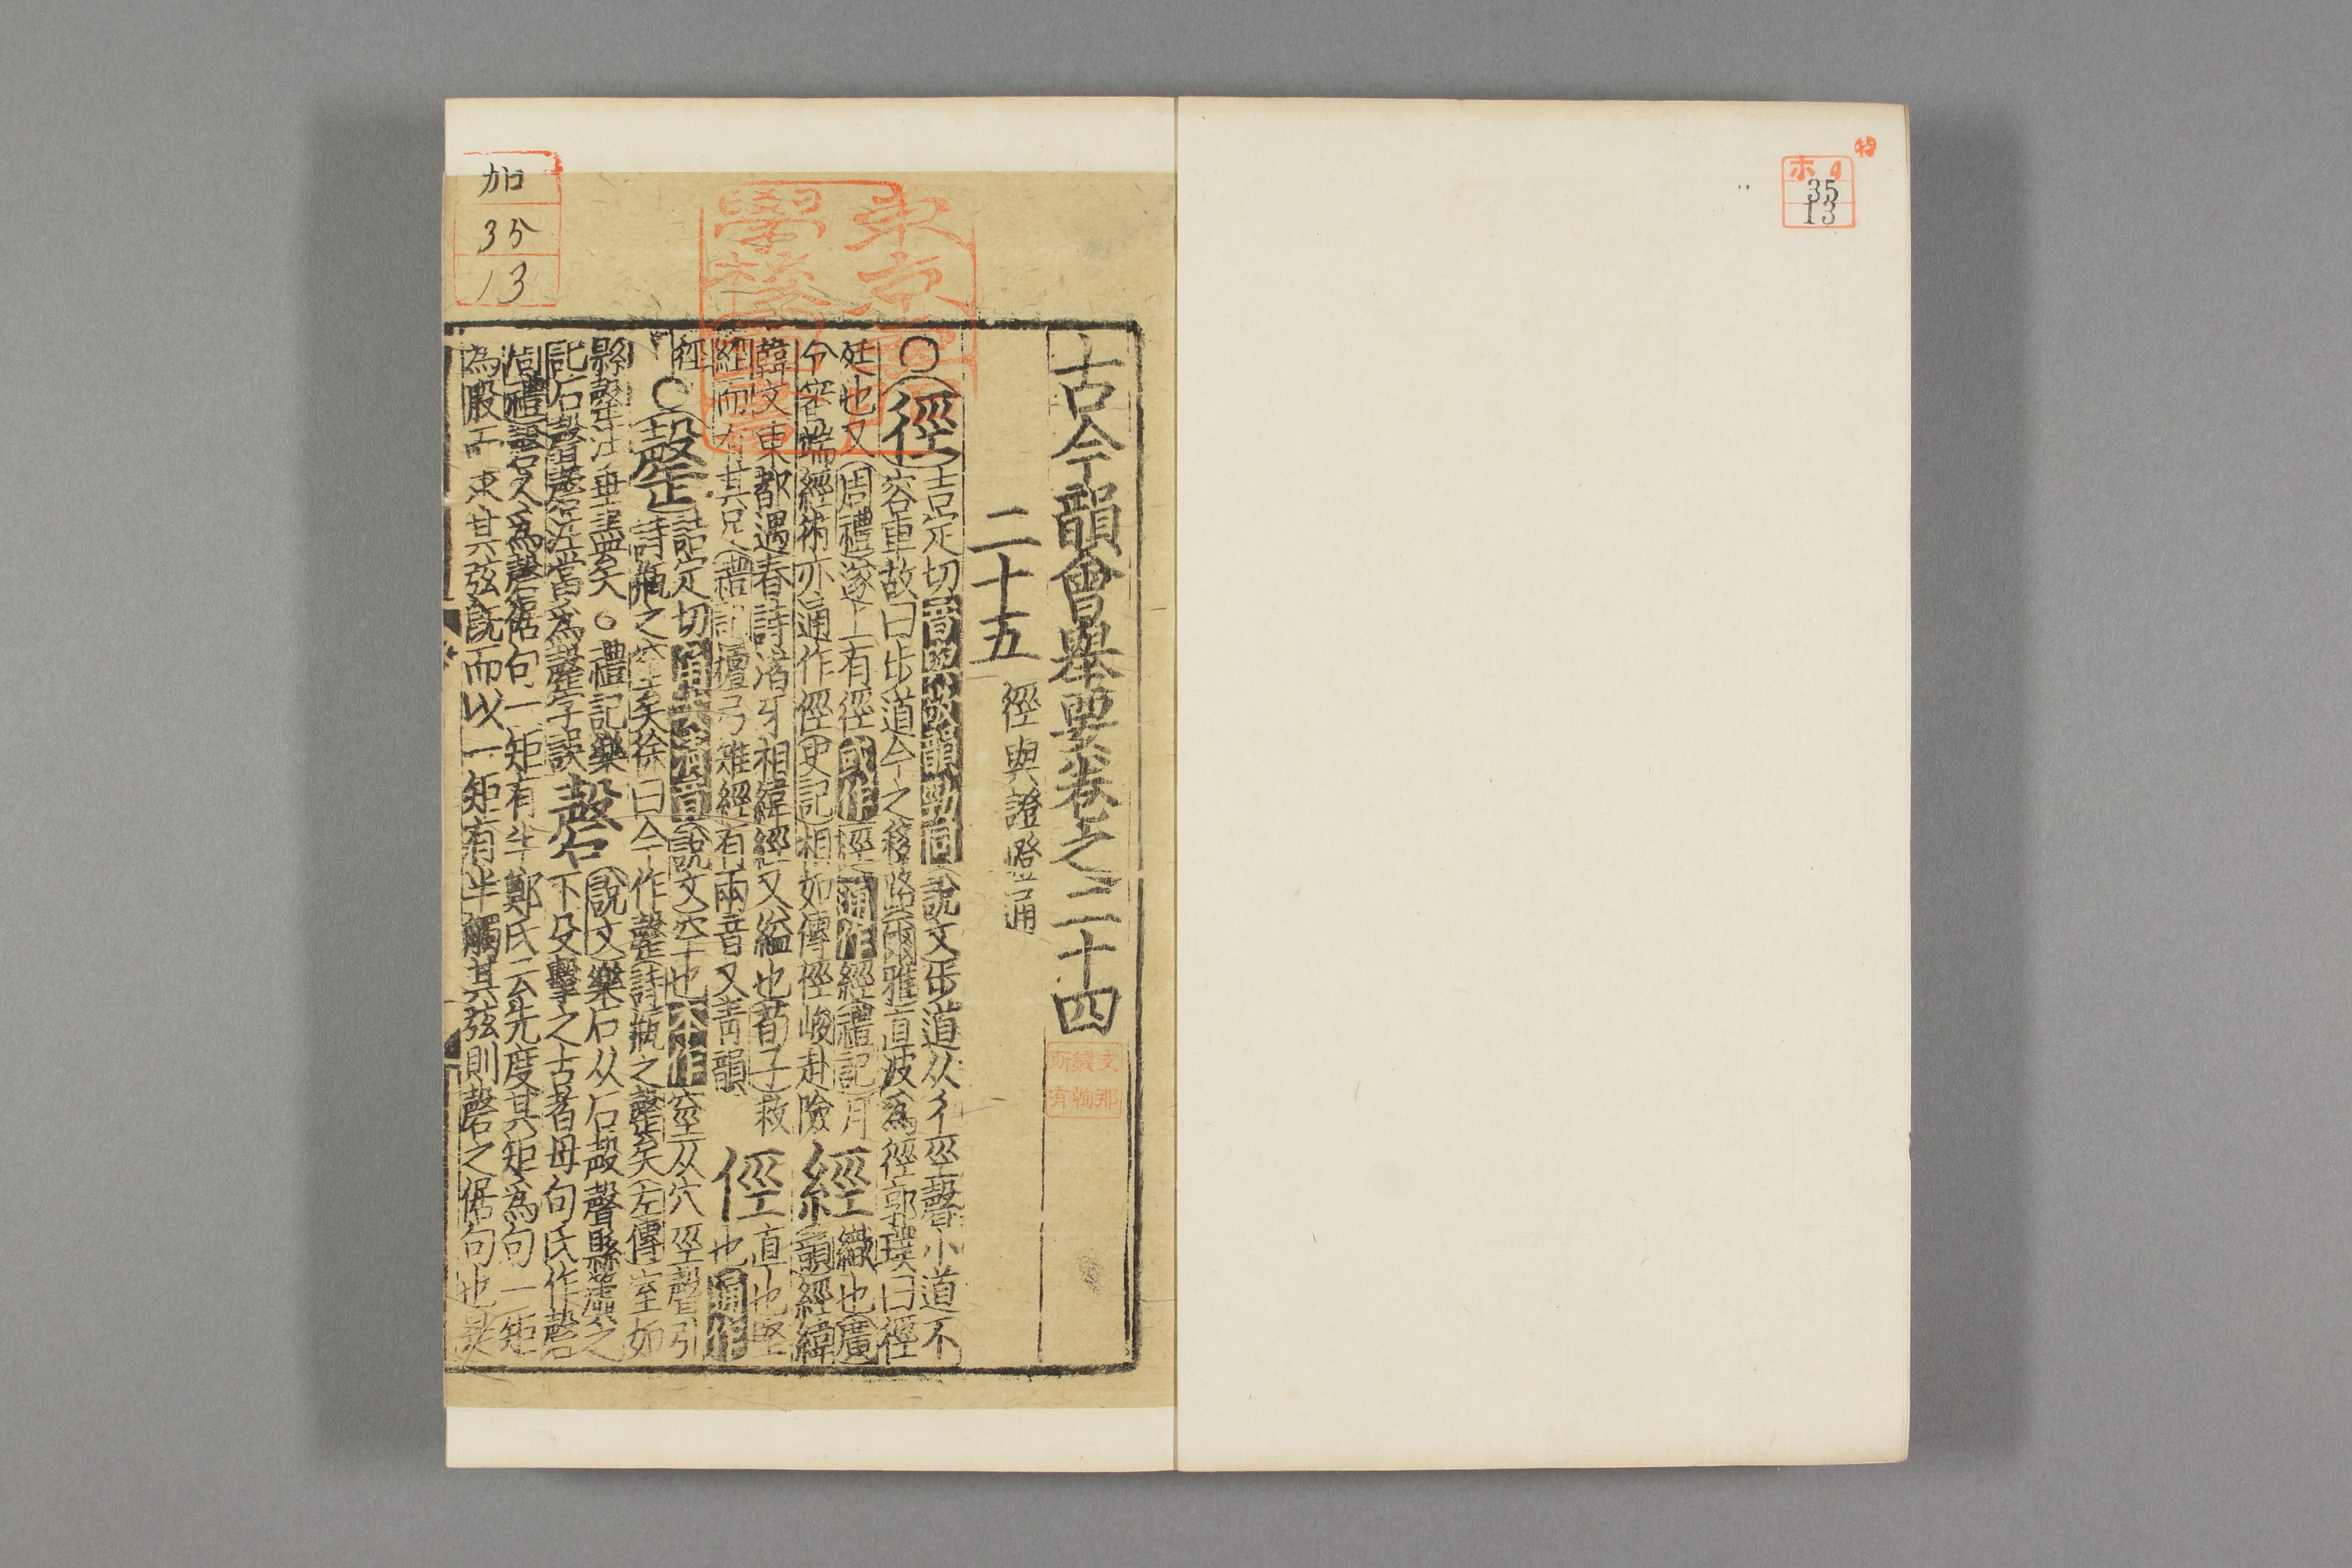 特
ホ 4
35
13
古今韻會舉要卷之二十四
支那
錢恂
所有
二十五 徑與證嶝通
○徑 吉定切音與敬韻勁同說文步道从彳巠聲小道不
容車故曰步道今之移路爾雅直波爲徑郭璞曰徑
廷也又周禮遂上有徑或作徑通作經禮記月
令審端經術亦通作徑史記相如傳徑峻赴險
經 織也廣
韻經緯
韓文東都遇春詩渚牙相緯經又縊也荀子救
經而引其足禮記檀弓雉經有兩音又靑韻
俓 直也堅
也通作
徑 ○罄 詰定切角次清音說文空也本作窒从穴巠聲引
詩瓶之窒矣徐曰今作罄詩瓶之罄矣左傳室如
縣罄注垂盡矣○禮記樂
記石聲罄注當爲罄字誤
磬 說文樂石从石殸聲縣虡之
下殳擊之古者毋句氏作磬
周禮磬久爲磬倨句一矩有半鄭氏云先度其矩爲句一矩
為股而求其弦既而以一矩有半觸其弦則磬之倨句也是
加
35
13